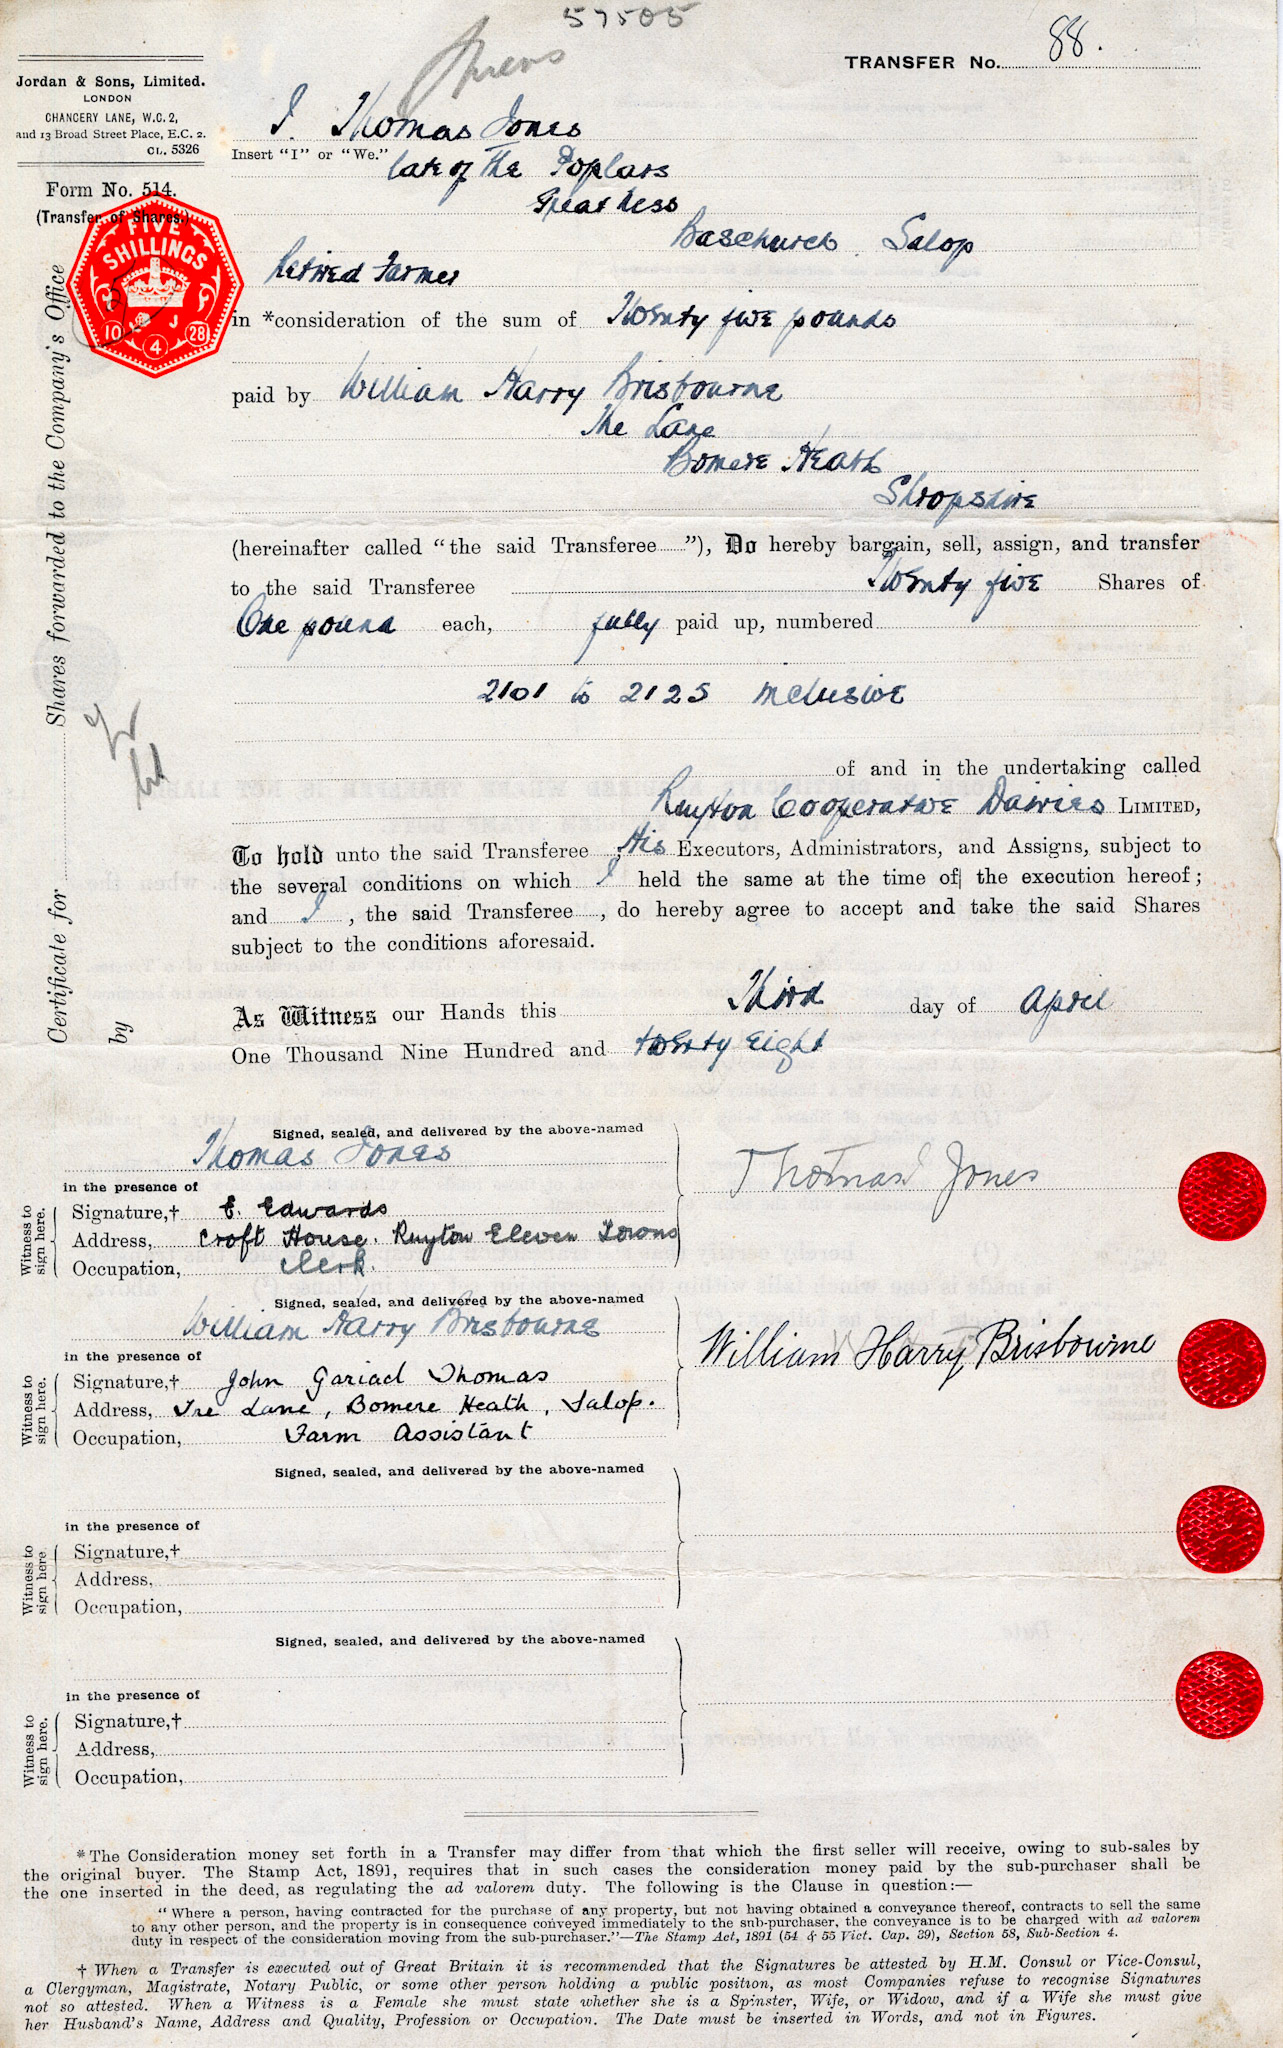 57505
TRANSFER No. 88.
Jordan & Sons, Limited.
LONDON
CHANCERY LANE, W.C. 2,
and 13 Broad Street Place, E.C. 2.
CL. 5326
Form No. 514.
(Transfer of Shares.)
FIVE
SHILLINGS
10 J 28
4
Certificate for Shares forwarded to the Company's Office
by
I Thomas Jones
Insert "I" or "We."
late of The Poplars
Baschurch Salop
Retired Farmer
in *consideration of the sum of Twenty five pounds
paid by William Harry Brisbourne
The Lane
Bomere Heath
Shropshire
(hereinafter called "the said Transferee "), Do hereby bargain, sell, assign, and transfer
to the said Transferee Twenty five Shares of
One pound each, fully paid up, numbered
2101 to 2125 inclusive
of and in the undertaking called
Ruyton Cooperative Dairies LIMITED,
To hold unto the said Transferee, His Executors, Administrators, and Assigns, subject to
the several conditions on which I held the same at the time of the execution hereof;
and I, the said Transferee , do hereby agree to accept and take the said Shares
subject to the conditions aforesaid.
As Witness our Hands this Third day of April
One Thousand Nine Hundred and twenty eight
Signed, sealed, and delivered by the above-named
Thomas Jones
Thomas Jones
in the presence of
Witness to sign here.
Signature,† E. Edwards
Address, Croft House. Ruyton Eleven Towns
Occupation, Clerk.
Signed, sealed, and delivered by the above-named
William Harry Brisbourne
William Harry Brisbourne
in the presence of
Witness to sign here.
Signature,† John Thomas
Address, The Lane, Bomere Heath, Salop.
Occupation, Farm Assistant
Signed, sealed, and delivered by the above-named
in the presence of
Witness to sign here
Signature,†
Address,
Occupation,
Signed, sealed, and delivered by the above-named
in the presence of
Witness to sign here.
Signature,†
Address,
Occupation,
*The Consideration money set forth in a Transfer may differ from that which the first seller will receive, owing to sub-sales by
the original buyer. The Stamp Act, 1891, requires that in such cases the consideration money paid by the sub-purchaser shall be
the one inserted in the deed, as regulating the ad valorem duty. The following is the Clause in question:—
"Where a person, having contracted for the purchase of any property, but not having obtained a conveyance thereof, contracts to sell the same
to any other person, and the property is in consequence conveyed immediately to the sub-purchaser, the conveyance is to be charged with ad valorem
duty in respect of the consideration moving from the sub-purchaser."—The Stamp Act, 1891 (54 & 55 Vict. Cap. 39), Section 58, Sub-Section 4.
† When a Transfer is executed out of Great Britain it is recommended that the Signatures be attested by H.M. Consul or Vice-Consul,
a Clergyman, Magistrate, Notary Public, or some other person holding a public position, as most Companies refuse to recognise Signatures
not so attested. When a Witness is a Female she must state whether she is a Spinster, Wife, or Widow, and if a Wife she must give
her Husband's Name, Address and Quality, Profession or Occupation. The Date must be inserted in Words, and not in Figures.